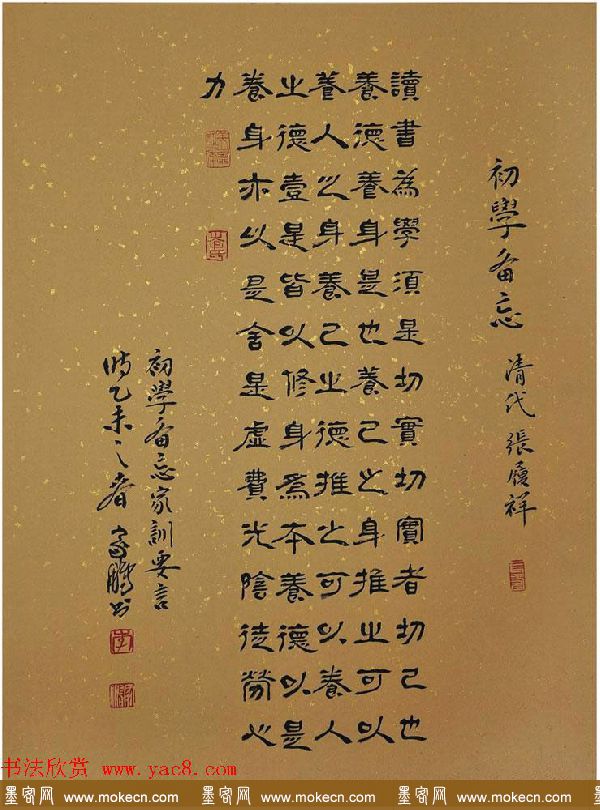 初學备忘 清代 張履祥
讀書為學須是切實切實者切己也
養德養身是也養己之身推之可以
養人之身養己之德推之可以養人
之德壹是皆以修身為本養德以是
養身亦以是舍是虛費光陰徒勞心
力
初學备忘家訓要言
時乙未之春 家鵬书
书法欣赏 www.yac8.com
墨客网 www.mokecn.com 墨客网 www.mokecn.com 墨客网 www.mokecn.com